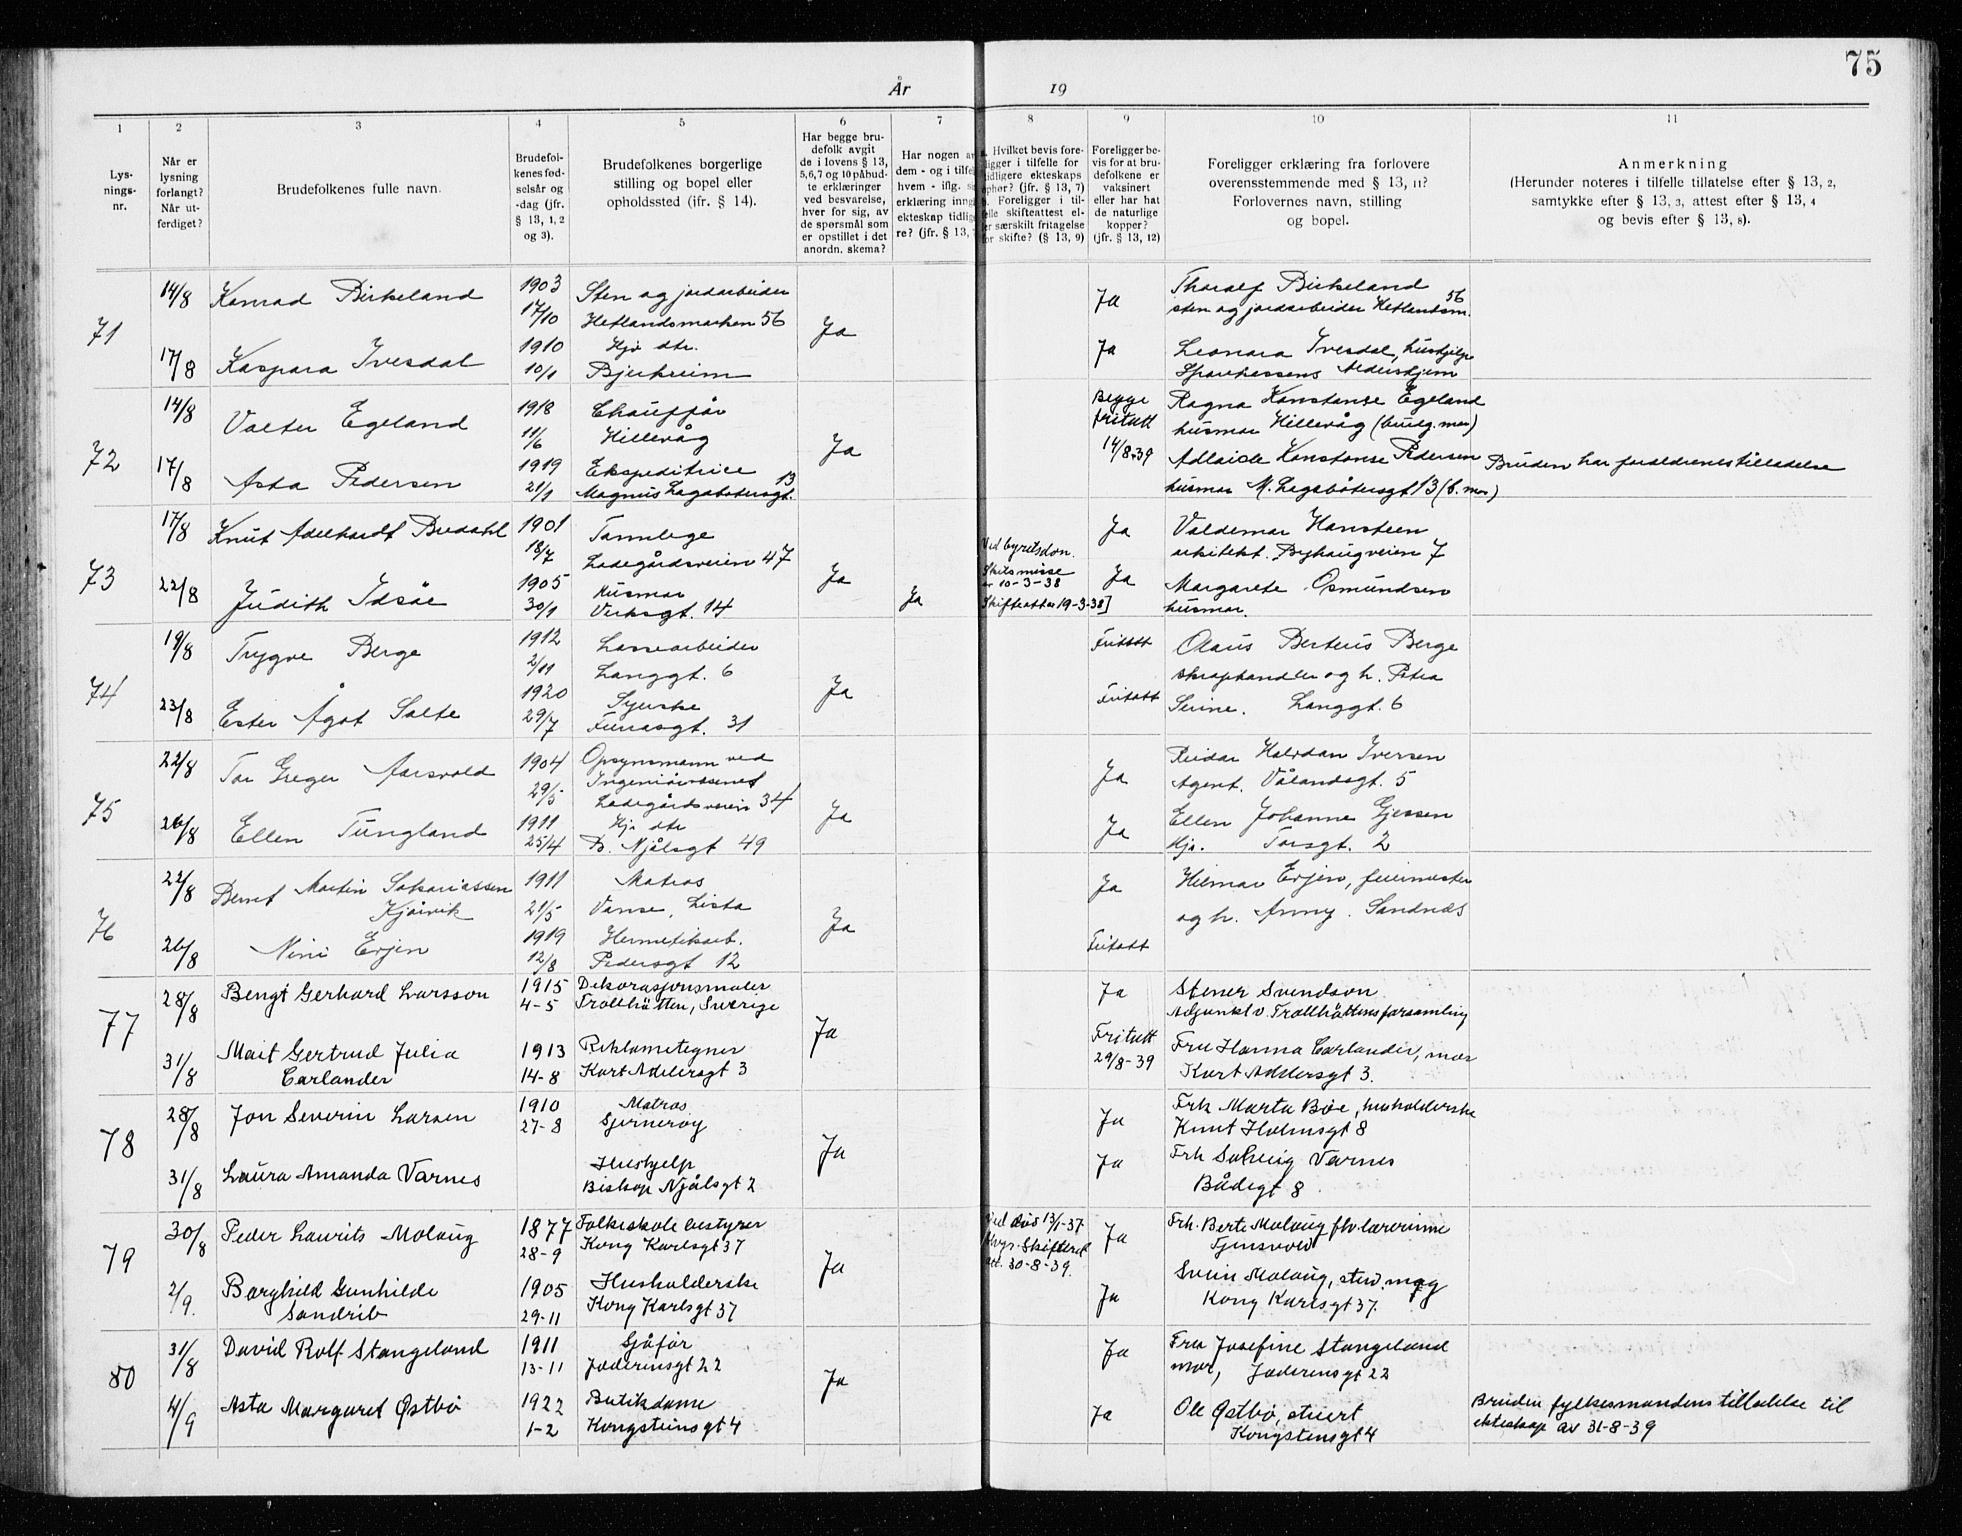 75
År 19
1 2 3 4 5 6 7 8 9 10 11
Lys-
nings-
nr.
Når er
lysning
forlangt?
Når ut-
ferdiget?
Brudefolkenes fulle navn.
Brudefol-
kenes fød-
selsår og
-dag (jfr.
§ 13, 1, 2
og 3).
Brudefolkenes borgerlige
stilling og bopel eller
opholdssted (jfr. § 14).
Har begge bru-
defolk avgit
de i lovens § 13,
5,6,7 og 10 påbud-
te erklæringer
ved besvarelse,
hver for sig, av
de spørsmål som
er opstillet i det
anordn. skema?
Har nogen
dem - og i tilfel
hvem - iflg.
erklæring inng
ekteskap tidlig
re? (jfr. § 13,
Hvilket bevis fore-
ligger i tilfelle for
tidligere ekteskaps
ophør? (jfr. § 13, 7)
Foreligger i til-
felle skifteattest el-
ler særskilt fritagelse
for skifte? (§ 13, 9)
Foreligger be-
vis for at bru-
defolkene er
vaksinert
eller har hat
de naturlige
kopper?
(jfr. § 13, 12)
Foreligger erklæring fra forlovere
overensstemmende med § 13, 11?
Forlovernes navn, stilling
og bopel.
Anmerkning
(Herunder noteres i tilfelle tillatelse efter § 13, 2,
samtykke efter § 13, 3, attest efter § 13, 4
og bevis efter § 13, 8).
71
14/8 Konrad Birkeland 1903 17/10 Sten og jordarbeider
Hetlandsmarken 56 Ja Ja Thoralf Birkeland
sten og jordarbeider Hetlandsm. 56
17/8 Kaspara Ivesdal 1910 10/1 Hjr dtr.
Bjerkreim Ja Leonora Ivesdal, hushjelp
Sparkassens Aldershjem
72
14/8 Valter Egeland 1918 11/6 Chauffør
Hillevåg Ja Begge
fritatt
14/8-39 Ragna Konstanse Egeland
husmor Hillevåg (brudg. mor)
17/8 Asta Pedersen 1919 21/1 Ekspeditrice
Magnus Lagabøtersgt. 13 Adlaide Konstanse Pedersen
husmor M. Lagabøtersgt 13 (b. mor)
Bruden har foreldrenes tilladelse
73
17/8 Knut Adelhardt Bredahl 1901 18/7 Tannlege
Ladegårdsveien 47 Ja Ja Valdemar Hansteen
arkitekt. Byhaugveien 7
22/8 Judith Idsøe 1905 30/1 Husmor
Verksgt. 14 Ja Ved byretsdom.
10-3-38
Skifteattest 19-3-38] Ja Margarete Osmundsen
husmor.
74
19/8 Trygve Berge 1912 2/11 Lossearbeider
Langgt. 6 Ja Fritatt Olaus Berteus Berge
skraphandler og h. Petra
23/8 Ester Ågot Salte 1920 29/7 Syerske
31 Fritatt Serine. Langgt. 6
75
22/8 Tor Greger Aarsvold 1904 29/5 Opsynsmann ved
Ingeniørvesenet
Ladegårdsveien 34 Ja Ja Reidar Halvdan Iversen
Agent. Vålandsgt. 5
26/8 Ellen Tungland 1911 25/4 Hjr dtr
B. Njålsgt 49 Ja Ellen Johanne Gjessen
Hjr. Torsgt. 2
76
22/8 Bernt Martin Sakariassen
Kjørvik 1911 21/5 Matros
Vanse, Lista Ja Ja Hilmar Erjen, feiermester
og h. Anny. Sandnes
26/8 Nini Erjen 1919 12/8 Hermetikarb.
Pedersgt 12 Fritatt
77
28/8 Bengt Gerhard Larsson 1915 4-5 Dekorasjonsmaler
Trollhätten, Sverige Ja Ja Stener Svendson
Adjunkt v. Trollhättens forsamling
31/8 Mait Gertrud Julia
Carlander 1913 14-8 Reklametegner
Kort Adelersgt 3 Fritatt
29/8-39 Fru Hanna Carlander, mor
Kort Adelersgt 3.
78
28/8 Jon Severin Larsen 1910 27-8 Matros
Sjernerøy Ja Ja Frk Marta Bøe, husholderske
Knut Holmsgt 8
31/8 Laura Amanda Varnes Hushjelp
Biskop Njålsgt 2 Ja Frk Solveig Varnes
Bådegt 8
79
30/8 Peder Laurits Molaug 1877 28-9 Folkeskolebestyrer
Kong Karlsgt 37 Ja Ved død 13/1-37
Skifteret
att. 30-8-39. Ja Frk. Berte Molaug fhv. lærerinne
2/9. Borghild Gunhilde
Sandrib 1905 29-11 Husholderske
Kong Karlsgt 37 Ja Svein Molaug, stud. mag
Kong Karlsgt 37.
80
31/8 David Rolf Stangeland 1911 13-11 Sjåfør
Jæderensgt 22 Ja Ja Fru Josefine Stangeland
mor, Jæderensgt 22
4/9 Asta Margaret Østbø 1922 1-2 Butikdame
Kongsteinsgt 4 Ja Ole Østbø, stuert
Kongstensgt 4
Bruden fylkesmandens tilladelse til
ekteskap av 31-8-39